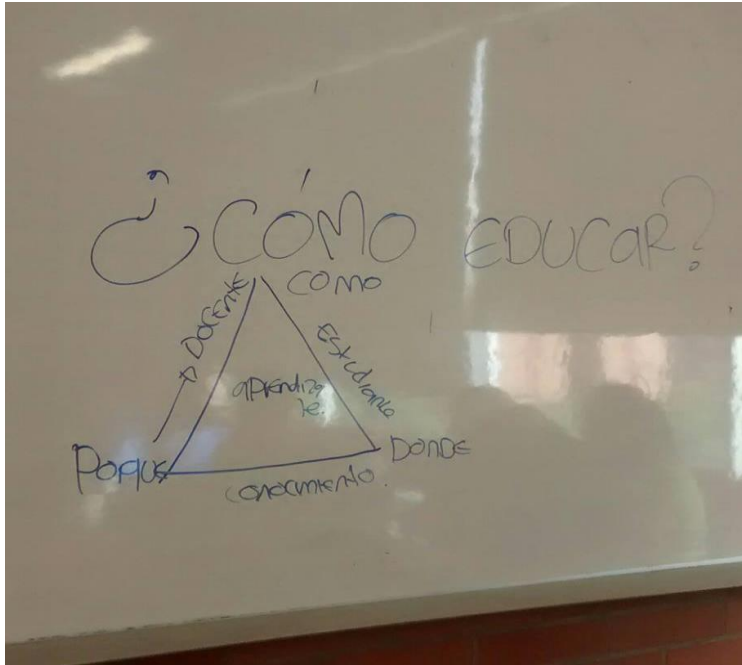 ¿CÓMO EDUCAR?
COMO
DOCENTE
Estudiante
aprendiza
je.
PORQUE
DONDE
conocimiento.